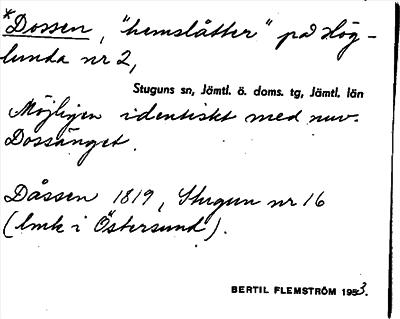 *Dossen, "hemslåtter" på Hög-
lunda nr 2,
Stuguns sn, Jämtl. ö. doms. tg, Jämtl. län
Möjligen identiskt med nuv.
Dossänget.
Dåssen 1819, Stugun nr 16
(lmk i Östersund).
BERTIL FLEMSTRÖM 1953.